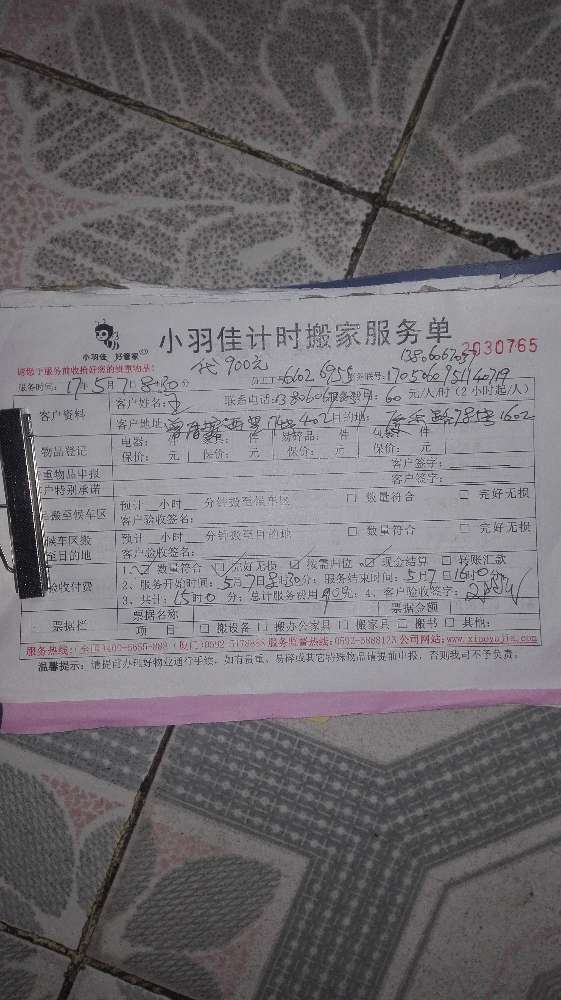 小羽佳 好管家
小羽佳计时搬家服务单
2030765
请您于服务前收拾好您的贵重物品!
代900元
服务时间: 17年5月7日8时30分
客户资料 客户姓名: 王 联系电话: 服务费用: 60 元/人/时(2小时起/人)
客户地址: 402 目的地: 1602
物品登记 电器: 件 易碎品: 件 件
保价: 元 保价: 元 保价: 元 保价: 元
重物品申报 客户签字:
户特别承诺 客户签字:
搬至候车区 预计 小时 分钟搬至候车区 □ 数量符合 □ 完好无损
客户验收签名:
候车区搬至目的地 预计 小时 分钟搬至目的地 □ 数量符合 □ 完好无损
客户验收签名:
验收付费 1、☑ 数量符合 ☑ 完好无损 ☑ 按需归位 ☑ 现金结算 □ 转账汇款
2、服务开始时间: 5月7日8时30分; 服务结束时间: 5月7日16时0
3、共计: 15时0分; 总计服务费用 900元; 4、客户验收签字:
票据栏 票据名称 票据金额
项 目 □ 搬设备 □ 搬办公家具 □ 搬家具 □ 搬书 □ 其他:
服务热线: (全国)400-6655-888 (厦门)0592-5188888 服务监督热线: 0592-6888123 公司网站: www.xiaoyujia.com
温馨提示: 请提前办理好物业通行手续, 如有贵重、易碎或其它特殊物品请提前申报, 否则我司不予负责。